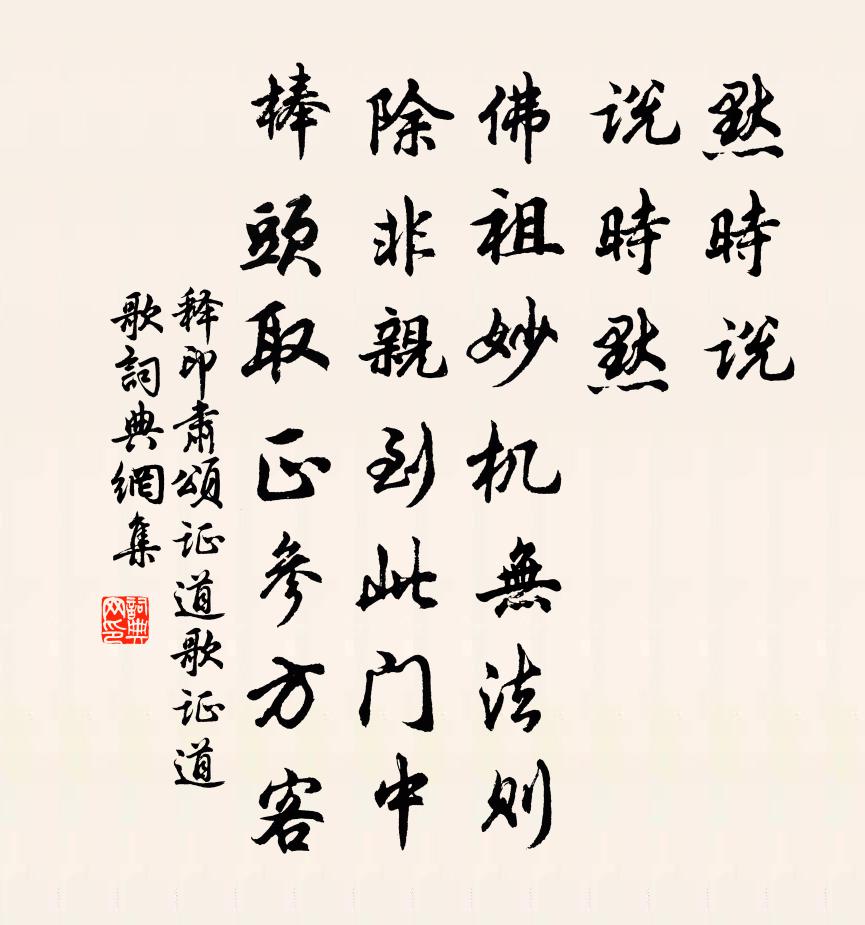 默時说
说時默
佛祖妙机無法则
除非親到此门中
棒頭取正參方客
释印肃頌证道歌证道
歌詞典網集
詞典网印